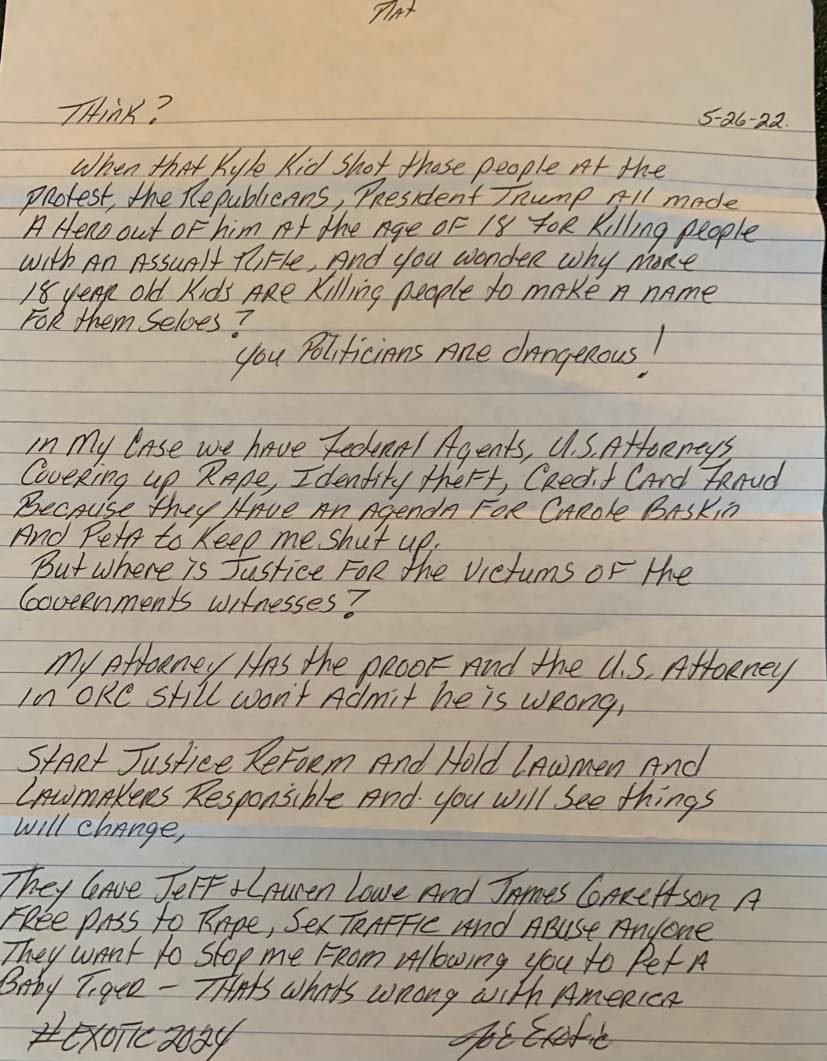 Nat
Think?
5-26-22.
When that Kyle Kid shot those people at the
protest, the Republicans, President Trump all made
a Hero out of him at the age of 18 for killing people
with an Assualt Rifle, and you wonder why more
18 year old kids are killing people to make a name
for them selves?
you Politicians are dangerous!
in my case we have Federal Agents, U.S. Attorneys
Covering up Rape, Identity theft, Credit Card Fraud
Because they have an agenda for Carole Baskin
and Peta to keep me shut up.
But where is Justice for the victums of the
Governments witnesses?
My Attorney has the proof and the U.S. Attorney
in OKC still won't admit he is wrong,
Start Justice Reform and Hold lawmen and
lawmakers Responsible and you will see things
will change,
They Gave Jeff + Lauren Lowe and James Garettson a
free pass to Rape, Sex Traffic and abuse anyone
They want to stop me from allowing you to Pet a
Baby Tiger - Thats whats wrong with America
#EXOTIC 2024
Joe Exotic